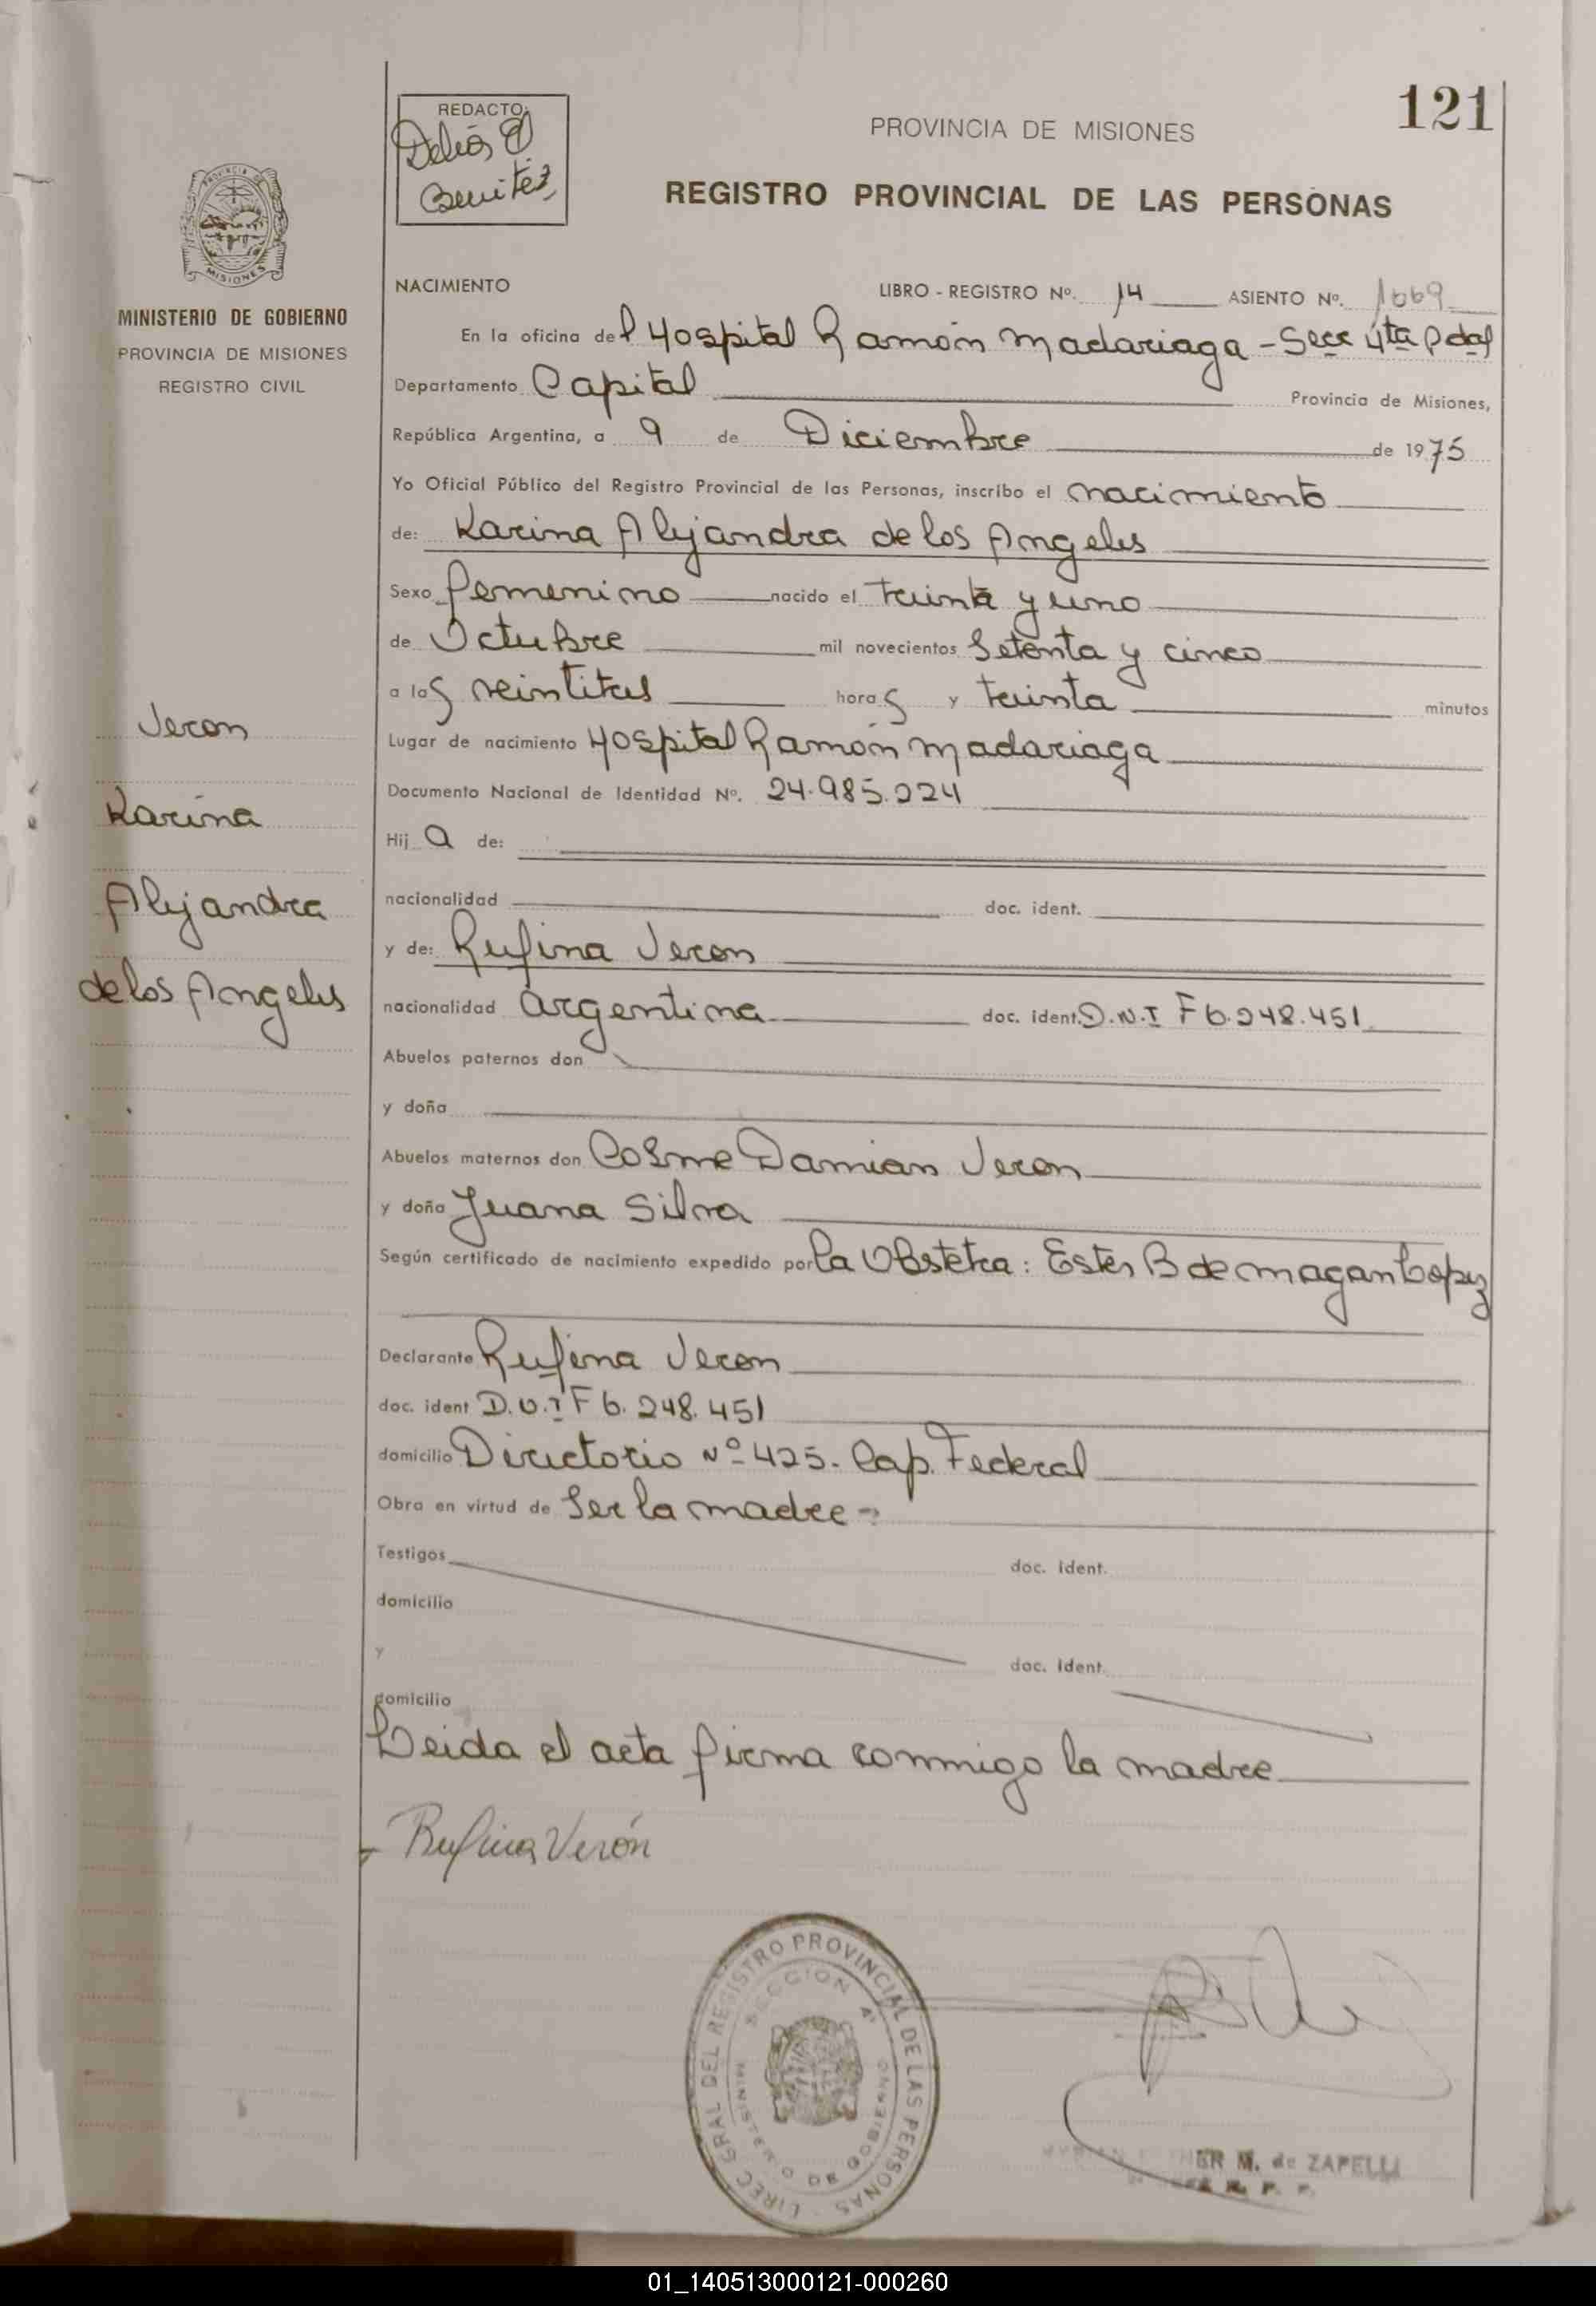 121
REDACTO:
Benitez
PROVINCIA DE MISIONES
REGISTRO PROVINCIAL DE LAS PERSONAS
PROVINCIA DE MISIONES
MINISTERIO DE GOBIERNO
PROVINCIA DE MISIONES
REGISTRO CIVIL
Veron
Karina
Alejandra
de los Angeles
NACIMIENTO LIBRO - REGISTRO Nº. 14 ASIENTO Nº. 1669
En la oficina del Hospital Ramón Madariaga - Secc 4ta Pdas
Departamento Capital Provincia de Misiones,
República Argentina, a 9 de Diciembre de 1975
Yo Oficial Público del Registro Provincial de las Personas, inscribo el nacimiento
de: Karina Alejandra de los Angeles
Sexo femenino nacido el treinta y uno
de Octubre mil novecientos Setenta y cinco
a las veintitres horas y treinta minutos
Lugar de nacimiento Hospital Ramón Madariaga
Documento Nacional de Identidad Nº. 24.985.224
Hij a de:
nacionalidad doc. ident.
y de: Rufina Veron
nacionalidad argentina doc. ident. D.N.I F 6.248.451
Abuelos paternos don
y doña
Abuelos maternos don Cosme Damian Veron
y doña Juana Silva
Según certificado de nacimiento expedido por la Obstetra: Ester B de Magan Lopez
Declarante Rufina Veron
doc. ident D.N.I F 6.248.451
domicilio Directorio Nº 425. Cap. Federal
Obra en virtud de Ser la madre =
Testigos doc. ident.
domicilio
y doc. ident.
domicilio
Leida el acta firma conmigo la madre
Rufina Verón
DIREC GRAL DEL REGISTRO PROVINCIAL DE LAS PERSONAS
SECCION 4ª
MINISTERIO DE GOBIERNO
M. de ZAPELLI
01_140513000121-000260